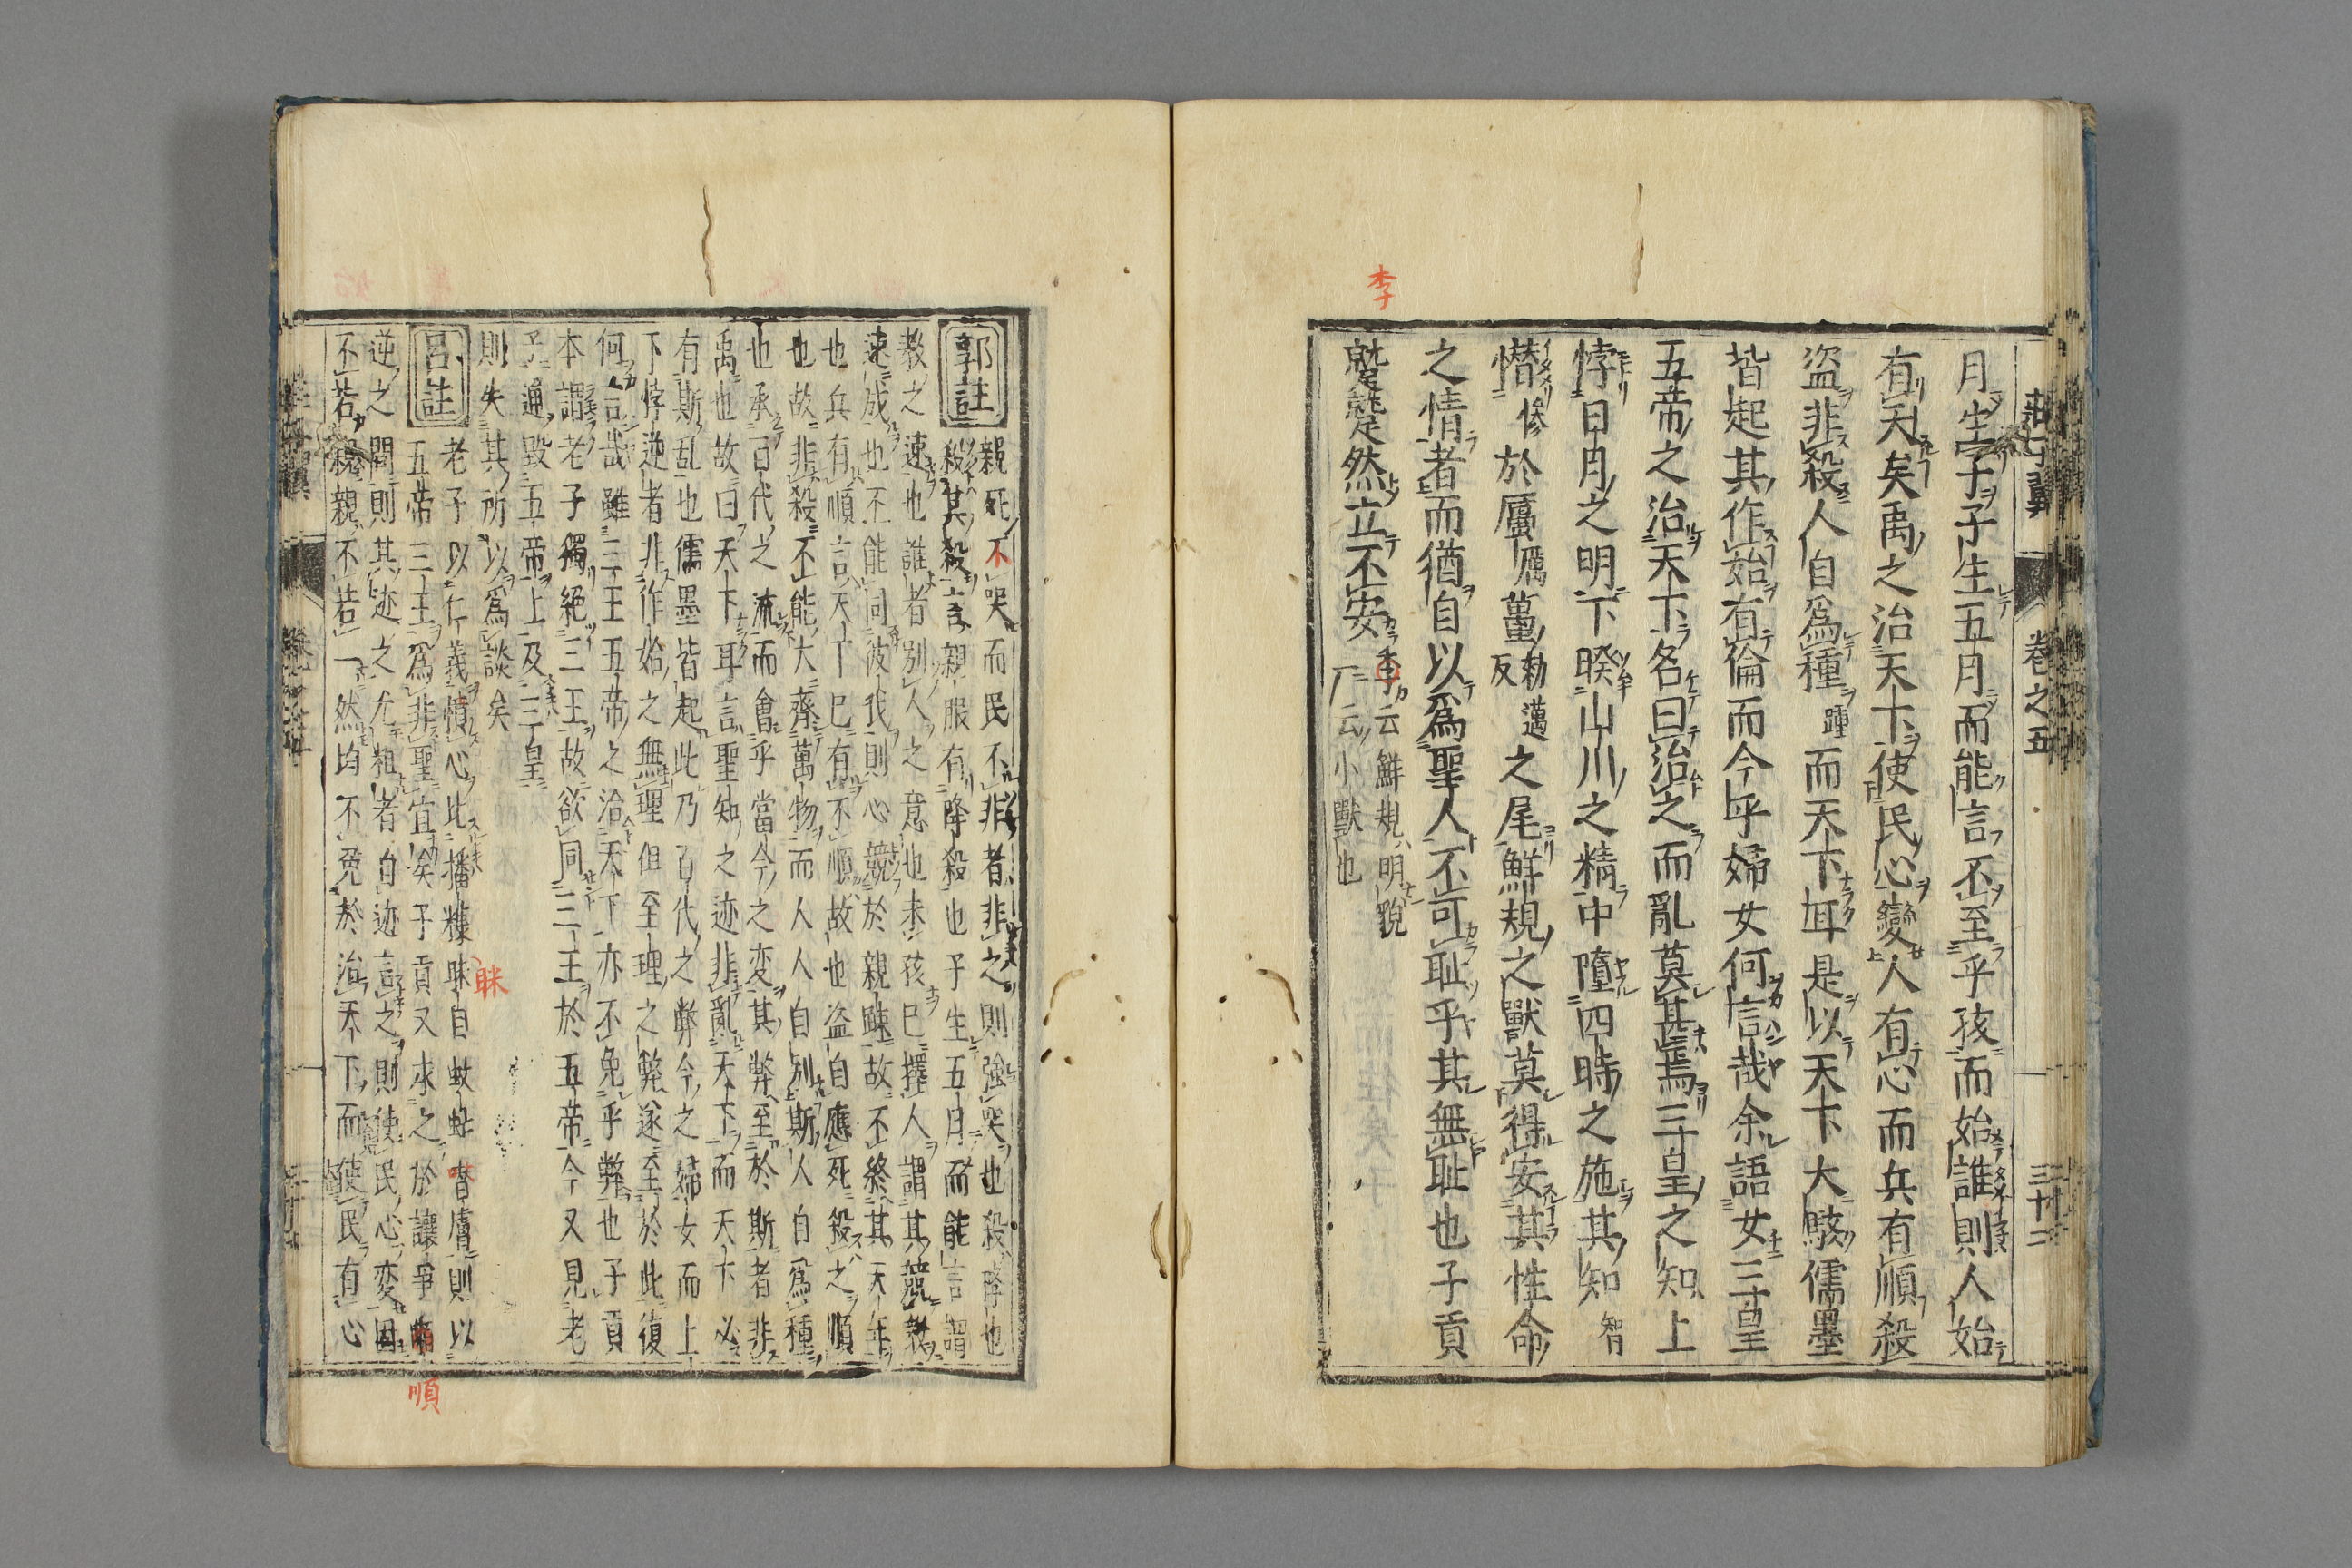 李
莊子翼 卷之五 三十二
月生子子生五月而能言不至乎孩而始誰則人始
有夭矣禹之治天下使民心變人有心而兵有順殺
盜非殺人自爲種踵而天下耳是以天下大駭儒墨
皆起其作始有倫而今乎婦女何言哉余語女三皇
五帝之治天下名曰治之而亂莫甚焉三皇之知上
悖日月之明下睽山川之精中墮四時之施其知智
憯慘於厲厲蠆勑邁反之尾鮮規之獸莫得安其性命
之情者而猶自以爲聖人不可恥乎其無恥也子貢
蹵蹵然立不安李云鮮規明貌
一云小獸也
郭註
親死不哭而民不非者非之則強哭也殺降也
殺其殺言親服有降殺也子生五月而能言謂
教之速也誰者別人之意也未孩已擇人謂其競教
速成也不能同彼我則心競於親踈故不終其天年
也兵有順言天下已有不順故也盗自應死殺之順
也故非殺不能大齊萬物而人人自別斯人自爲種
也承百代之流而會乎當今之変其弊至於斯者非
禹也故曰天下耳言聖知之迹非亂天下而天下必
有斯乱也儒墨皆起此乃百代之弊今之婦女而上
下悖逆者非作始之無理但至理之弊遂至於此復
何言哉雖三王五帝之治天下亦不免乎弊也子貢
本謂老子獨絕三王故欲同三王於五帝今又見老
子通毀五帝上及三皇
則失其所以爲談矣
呂註
老子以仁義憤心比播糠眯自蚊虻
膚則以
眯
五帝三王爲非聖宜矣子貢又求之於讓爭
順
逆之間則其迹之尤粗者自迹言之則使民心変固
不若親親不若一然均不免於治天下而使民有心